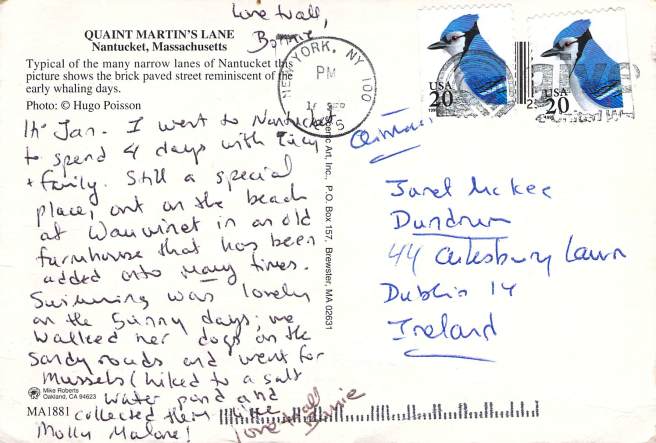 Love to all,
Bonnie
QUAINT MARTIN'S LANE
Nantucket, Massachusetts
Typical of the many narrow lanes of Nantucket this
picture shows the brick paved street reminiscent of the
early whaling days.
Photo: © Hugo Poisson
Hi Jan. I went to Nantucket
to spend 4 days with Lucy
+ family. Still a special
place, out on the beach
at Wauwinet in an old
farmhouse that has been
added onto many times.
Swimming was lovely
on the sunny days; we
walked her dogs on the
sandy roads and went for
mussels (hiked to a salt
water pond and
collected them like
Molly Malone!
love to all
Bonnie
Mike Roberts
Oakland, CA 94623
MA1881
Art, Inc., P.O. Box 157, Brewster, MA 02631
NEW YORK, NY 100
PM
USA
20
USA
20
Janet McKee
Dundrum
44 Lawn
Dublin 14
Ireland